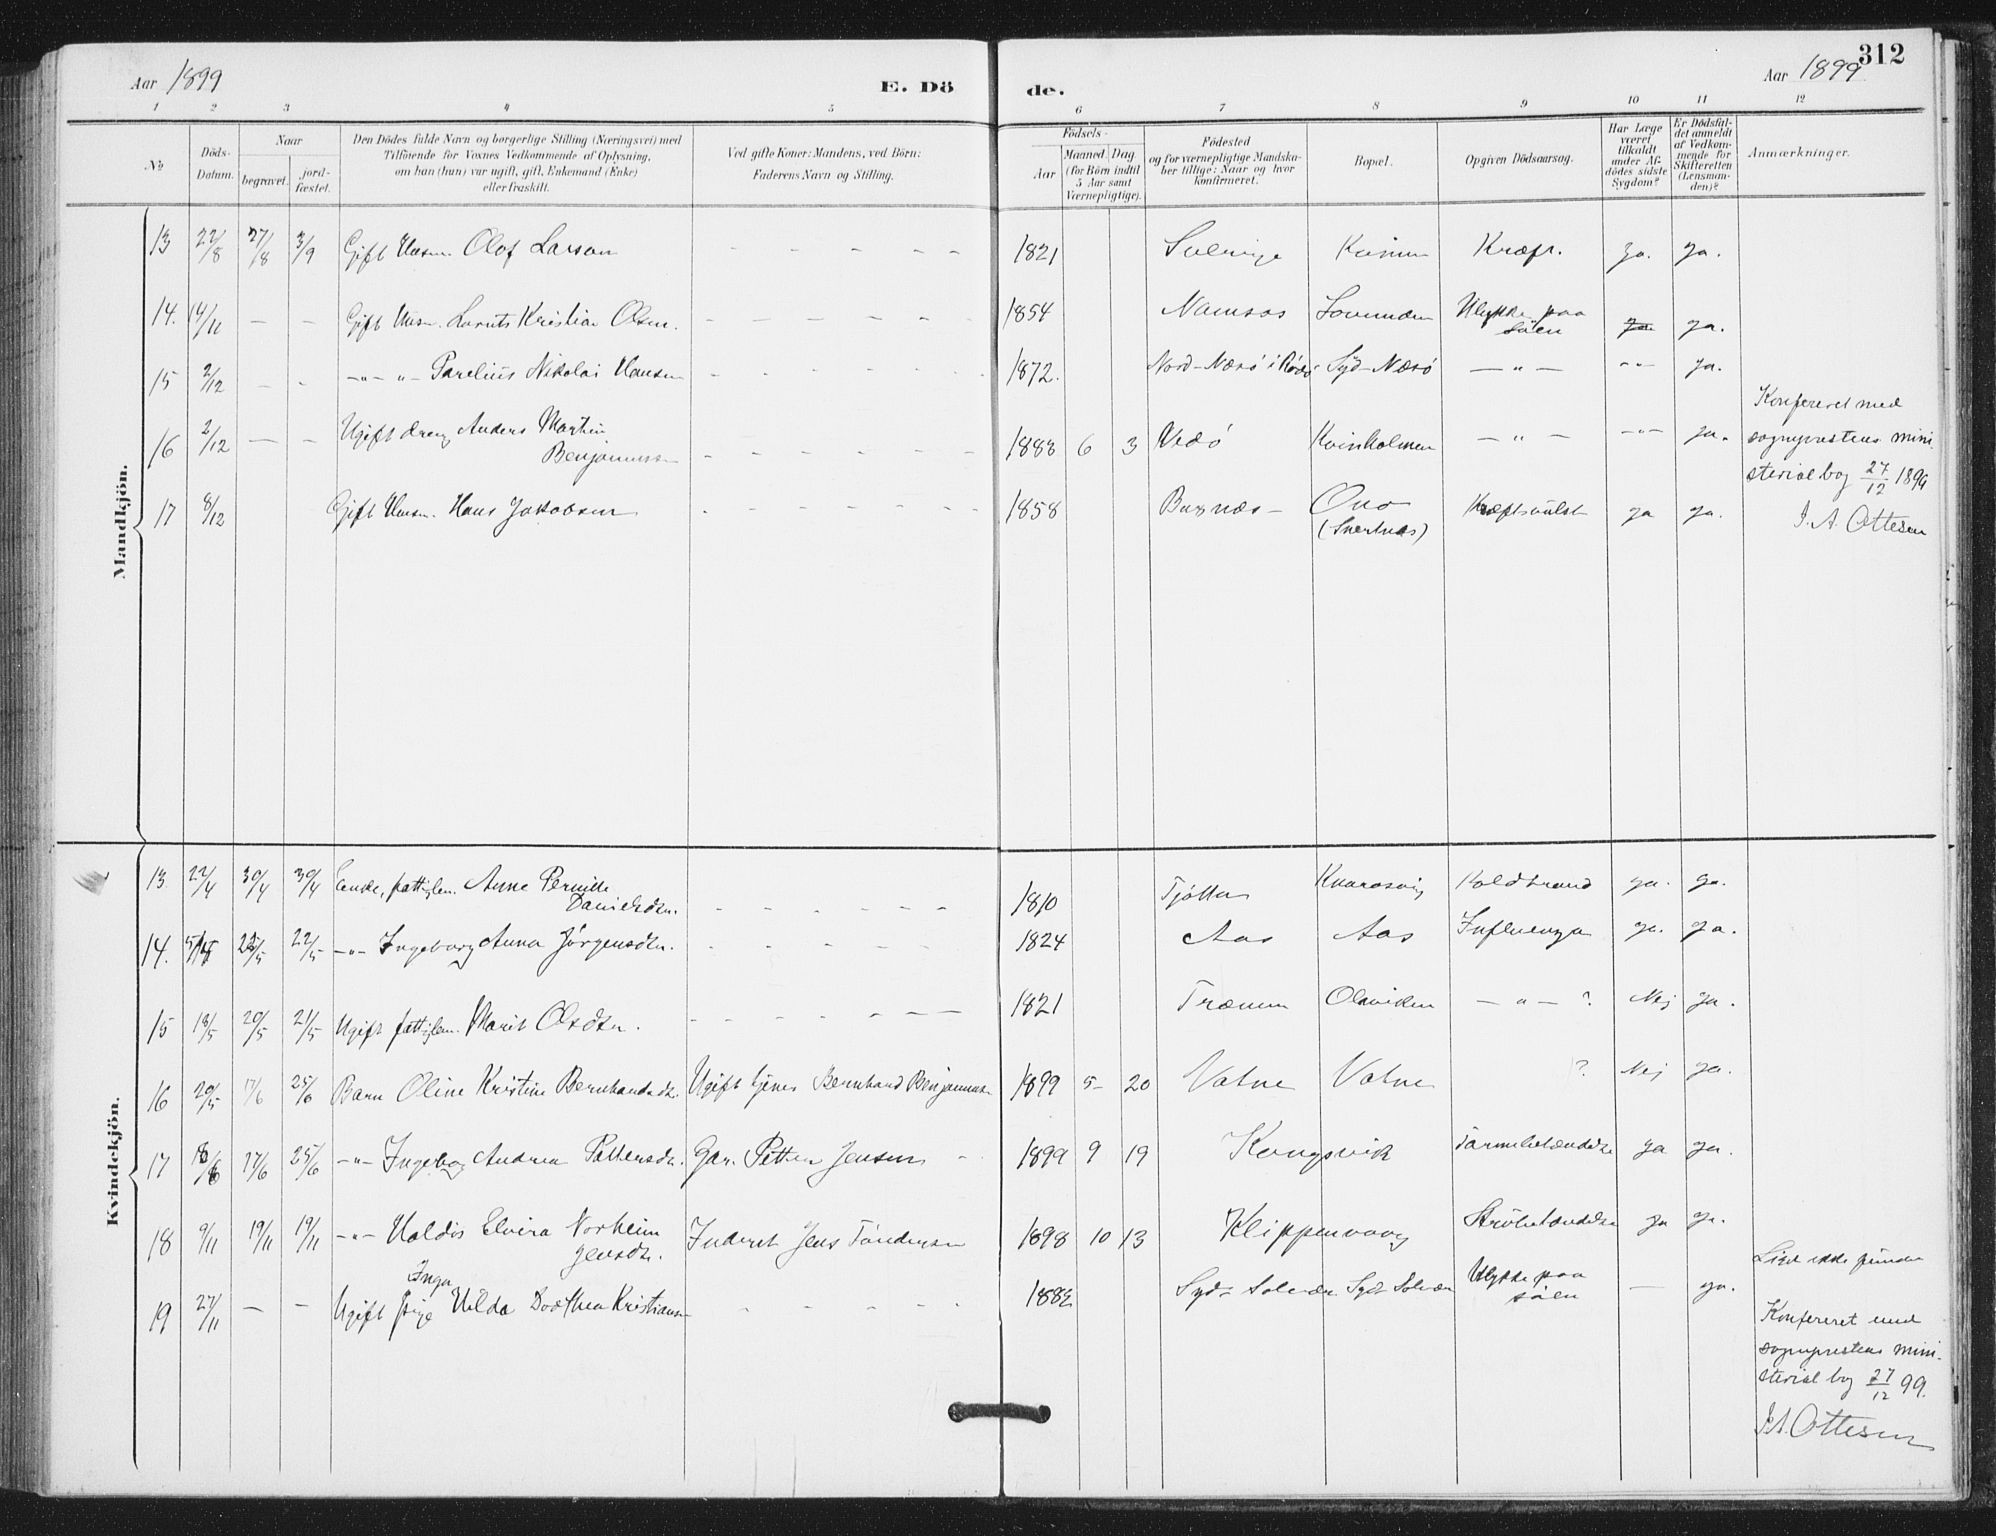 312
Aar 1899 E. Dö de. Aar 1899
1 2 3 4 5 6 7 8 9 10 11 12
No
Döds-
Datum.
Naar
begravet.
jord-
fæstet.
Den Dödes fulde Navn og borgerlige Stilling (Næringsvei) med
Tilföiende for Voxnes Vedkommende af Oplysning,
om han (hun) var ugift, gift, Enkemand (Enke)
eller fraskilt.
Ved gifte Koner: Mandens, ved Börn:
Faderens Navn og Stilling.
Födsels-
Aar
Maaned. Dag
(for Börn indtil
5 Aar samt
Værnepligtige).
Födested
og for værnepligtige Mandska-
ber tillige: Naar og hvor
konfirmeret.
Bopæl.
Opgiven Dödsaarsag.
Har Læge
været
tilkaldt
under Af-
dödes sidste
Sygdom?
Er Dödsfal-
det anmeldt
af Vedkom-
mende for
Skifteretten
(Lensman-
den)?
Anmærkninger.
Mandkjön.
13 22/8 27/8 3/9 Gift Husm. Olof Larson - - - - - 1821 Sverige Kræft. ja. ja.
14. 14/11 - - Gift Husm. Lornts Kristian Olsen. - - - - - - 1854 Namsos Lovunden Ulykke paa
söen ja ja.
15 2/12 - - -"- " Parelius Nikolai Hansen - - - - - - 1872. Nord-Næsö i Rödö Syd-Næsö - " - -"- ja.
16 2/12 - - Ugift dreng Anders Martin
Benjaminsen - - - - - - 1883 6 3 Kvinholmen - " - -"- ja.
Konfereret med
sogneprestens mini-
sterialbog 27/12 1899
J. A. Ottesen
17 8/12 Gift Husm. Hans Jakobsen - - - - - - 1858 Buxnæs - Onö
(Svertnæs) Kræftsvulst ja ja.
Kvindekjön.
13. 22/4 30/4 30/4 Enke, fattiglem. Anne Pernille
Danielsdtr. - - - - - - 1810 Tjötta Kvarosvig Koldbrand ja. ja.
14. 22/5 22/5 -"- Ingeborg Anna Jörgensdtr. - - - - - 1824 Aas Aas Influenza ja. ja.
15 18/5 20/5 21/5 Ugift fattiglem. Marit Olsdtr. - - - - - - - 1821 Trænen Olaviken - " - ? Nej ja.
16 20/5 17/6 25/6 Barn Oline Kristine Bernhardsdtr. Ugift tjener Bernhard Benjaminsen 1899 5- 20 Vatne Vatne ? Nej ja.
17 17/6 25/6 -"- Ingeborg Andrea Pettersdtr. Gar. Petter Jensen - 1899 9 19 Kongsvik Tarmbetændelse ja ja.
18 9/11 19/11 19/11 -"- Haldis Elvira Norheim
Jensdtr. Inderst Jens Töndersen 1898 10 13 Klippenvaag Strubetændelse ja ja.
19 27/11 - - Ugift pige Inga Hilda Dorthea Kristiansen - - - - - Syd-Solvær Syd Solvær Ulykke paa
söen - ja.
Liget ikke funden
Konfereret med
sogneprestens mini-
sterialbog 27/12 99.
J.A. Ottesen